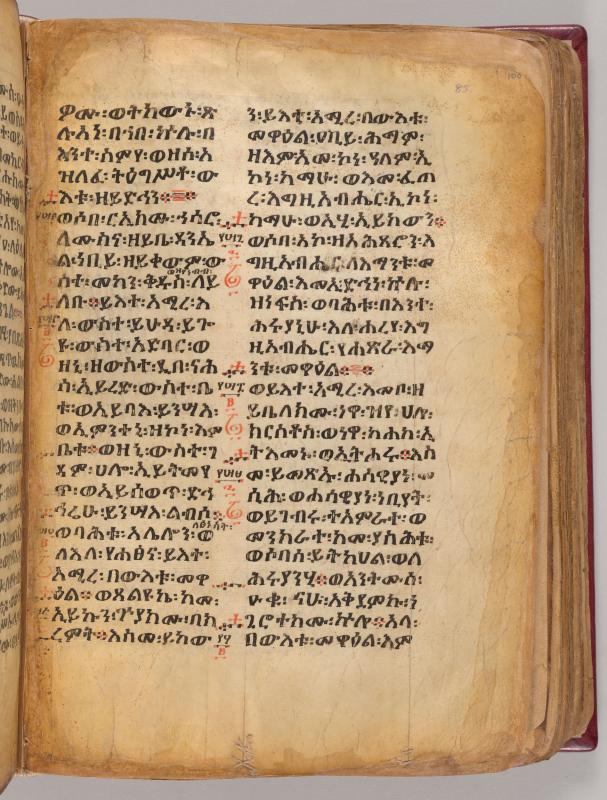 ዎሙ፡ወትከውኑ፡ጽ
ሉአነ፡በኀበ፡ኵሉ፡በ
እንተ፡ስምየ፡ወዘሰ፡አ
ዝለፈ፡ትዕግሥቶ፡ው
እቱ፡ዘይድኅን።
ወሶበ፡ርኢክሙ፡ኅሳሮ
ለሙስና፡ዘይቤ፡ዳንኤ
ል፡ነቢይ፡ዘይቀውም፡ው
ስተ፡መካን፡ቅዱስ፡ለይ
ለቡ።ይእተ፡አሚረ፡እ
ለ፡ውስተ፡ይሁዳ፡ይጕ
ዩ፡ውስተ፡አድባር፡ወ
ዘኒ፡ዘውስተ፡ደበ፡ናሕ
ስ፡ኢይረድ፡ውስተ፡ቤ
ቱ፡ወኢይባእ፡ይንሣእ፡
ወኢምንተኒ፡ዘኮነ፡እም
ቤቱ።ወዘኒ፡ውስተ፡ገ
ዳም፡ሀሎ፡ኢይትመየ
ጥ፡ወኢይሰወጥ፡ድኅ
ኅሬሁ፡ይንሣእ፡ልብሶ።
ወባሕቱ፡አሌሎን፡ወ
ለእለ፡የሐፅና፡ይእተ፡
አሚረ፡በውእቱ፡መዋ
ዕል።ወጸልዩኬ፡ከመ፡
ኢይኩን፡ጕያክሙ፡በክ
ረምት።እስመ፡ይከው
ን፡ይእተ፡አሚረ፡በውእቱ፡
መዋዕል፡ዐቢይ፡ሕማም፡
ዘእምአመ፡ኮነ፡ዓለም፡ኢ
ኮነ፡ከማሁ፡ወእመ፡ፈጠ
ረ፡እግዚአብሔር፡ኢኮነ፡
ከማሁ፡ወኢሂ፡ኢይከውን።
ወሶበ፡አኮ፡ዘአሕጸሮን፡እ
ግዚአብሔር፡ለእማንቱ፡መ
ዋዕል፡እመኢድኅነ፡ኵሉ፡
ዘነፍስ፡ወባሕቱ፡በእንተ፡
ሕሩያኒሁ፡እለ፡ሐረየ፡እግ
ዚአብሔር፡የሐጽራ፡እማ
ንቱ፡መዋዕል።
ወይእተ፡አሚረ፡እመቦ፡ዘ
ይቤለክሙ፡ነዋ፡ዝየ፡ሀሎ፡
ክርስቶስ፡ወነዋ፡ከሐከ፡ኢ
ትእመኑ፡ወኢትሐሩ።እስ
መ፡ይመጽኡ፡ሐሳዊያነ፡መ
ሲሕ፡ወሐሳዊያነ፡ነቢያት፡
ወይገብሩ፡ተአምራተ፡ወ
መንክራተ፡ከመ፡ያስሕቱ፡
ወሶበሰ፡ይትከሀል፡ወለ
ሕሩያንሂ።ወአንትሙሰ፡
ዑቁ፡ናሁ፡አቅደምኩ፡ነ
ጊሮተክሙ፡ኵሎ።እላ፡
በውእቱ፡መዋዕል፡እም